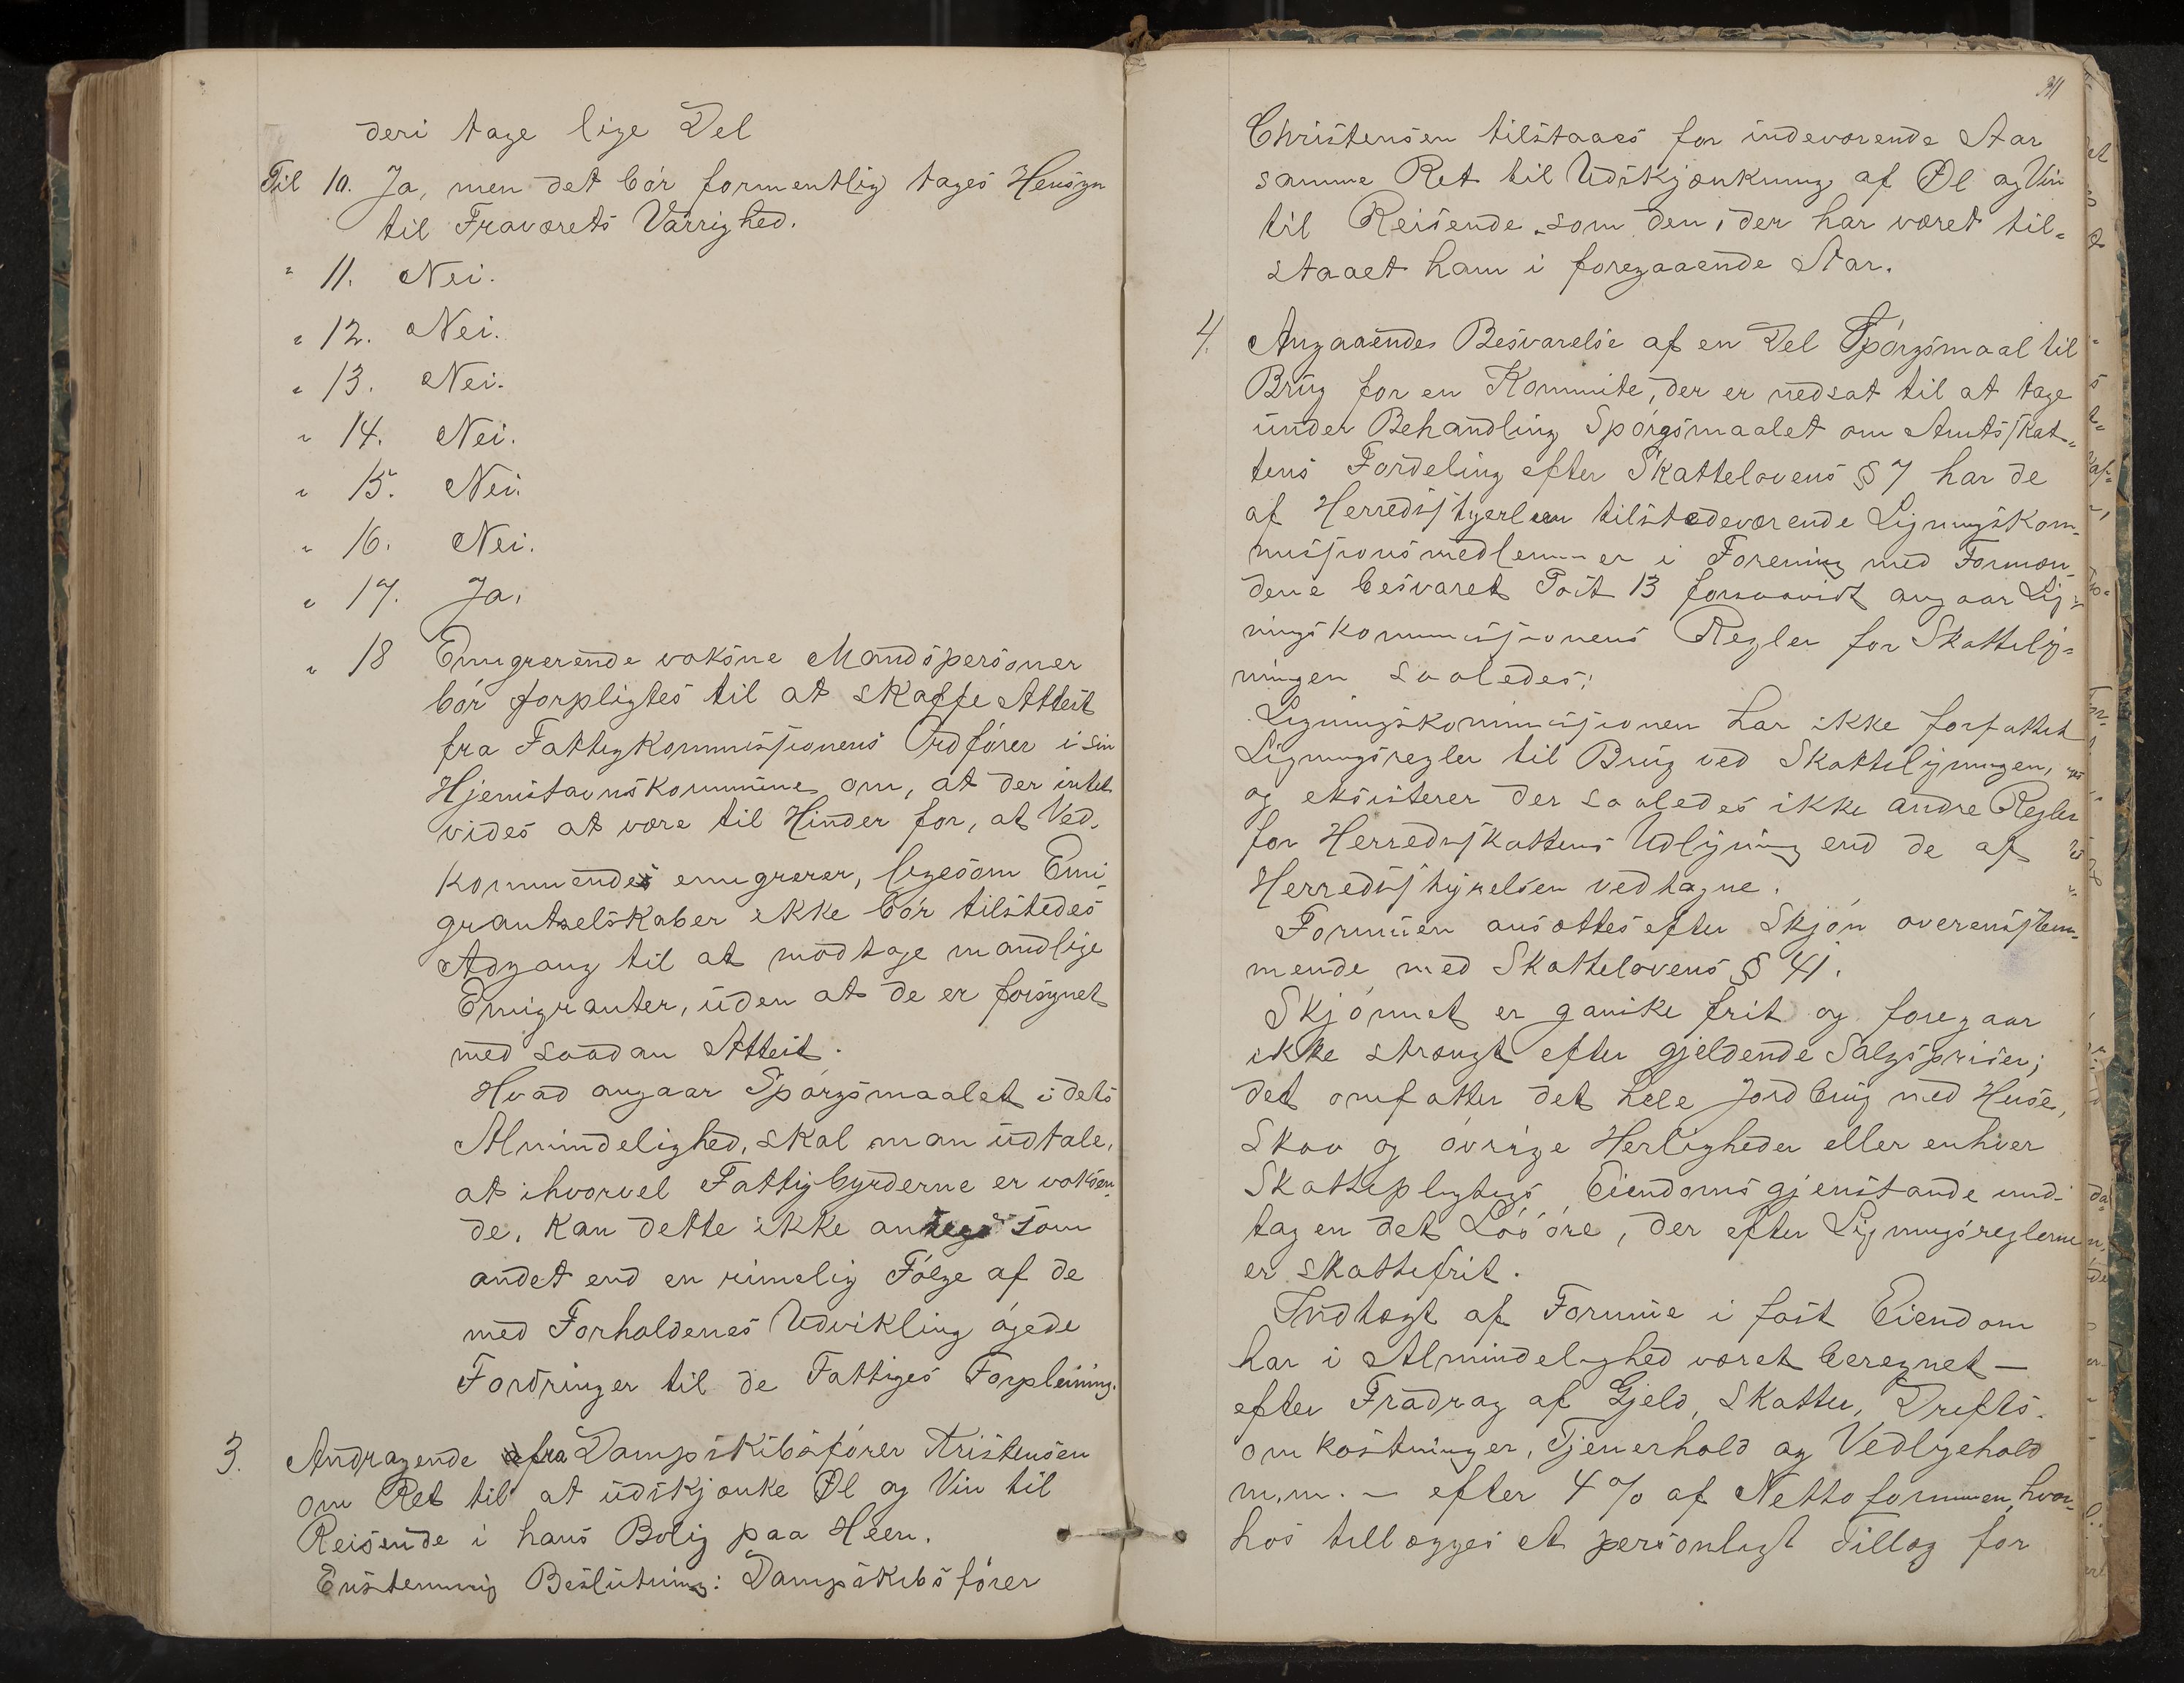 deri tage lige Del
Til 10. Ja, men det bör formentlig tages Hensyn
til Fraværets Varrighed.
" 11. Nei.
" 12. Nei.
" 13. Nei.
" 14. Nei.
" 15. Nei.
" 16. Nei.
" 17. Ja.
" 18 Emigrerende voksne Mandspersoner
bör forpligtes til at skaffe Attest
fra Fattigkommissionens Ordförer i sin
Hjemstavnskommune om, at der intet
vides at være til Hinder for, at Ved-
kommende emigrerer, ligesom Emi-
grantselskaber ikke bör tilstedes
Adgang til at modtage mandlige
Emigranter, uden at de er forsynet
med saadan Attest.
Hvad angaar Spörgsmaalet i dets
Almindelighed, skal man udtale,
at ihvorvel Fattigbyrderne er voksen-
de, kan dette ikke antages som
andet end en rimelig Fölge af de
med Forholdenes Udvikling ögede
Fordringer til de Fattiges Forpleining.
3. Andragende fra Dampskibsförer Kristensen
om Ret til at udskjænke Øl og Vin til
Reisende i hans Bolig paa Heen.
Enstemmig Beslutning: Dampskibsförer
311
Christensen tilstaaes for indeværende Aar
samme Ret til Udskjænkning af Øl og Vin
til Reisende som den, der har været til-
staaet ham i foregaaende Aar.
4. Angaaende Besvarelse af en Del Spörgsmaal til
Brug for en Kommite, der er nedsat til at tage
under Behandling Spörgsmaalet om Amtsskat-
tens Fordeling efter Skattelovens § 7 har de
af Herredsstyrelsen tilstedeværende Ligningskom-
missionsmedlemmer i Forening med Formæn-
dene besvaret Post 13 forsaavidt angaar Lig-
ningskommissionens Regler for Skattelig-
ningen saaledes:
Ligningskommissionen har ikke forfattet
Ligningsregler til Brug ved Skatteligningen,
og eksisterer der saaledes ikke andre Regler
for Herredsskattens Udligning end de af
Herredsstyrelsen vedtagne.
Formuen ansættes efter Skjön overensstem-
mende med Skattelovens § 41.
Skjönnet er ganske frit og foregaar
ikke strængt efter gjeldende Salgspriser;
det omfatter det hele Jordbrug med Huse,
Skov og övrige Herligheder eller enhver
Skattepligtigs Eiendomsgjenstande und-
tagen det Lösöre, der efter Ligningsreglerne
er skattefrit.
Indtægt af Formue i fast Eiendom
har i Almindelighed været beregnet —
efter Fradrag af Gjeld, Skatter, Drifts-
omkostninger, Tjenerhold og Vedligehold
m.m. — efter 4 % af Nettoformuen, hvor-
hos tillægges et personligt Tillæg for